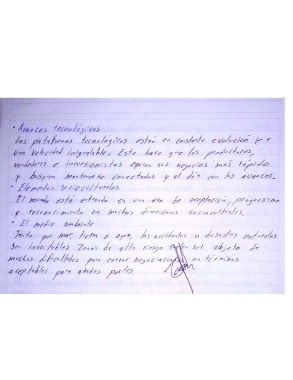 • Avances tecnológicos
Las plataformas tecnológicas están en constante evolución y a
una velocidad inigualable. Este hace que los productores,
vendedores e inversionistas operen sus negocios más rápidos
y busquen mantenerse conectados y al día con los avances.
• Elementos socioculturales
El mundo está entrando en una era de aceptación, progresismo
y reconocimiento en muchas dimensiones socioculturales.
• El medio ambiente
Tanto por mar, tierra o agua, los accidentes o desastres naturales
son inevitables. Zonas de alto riesgo ser objeto de
muchas dificultades para cerrar negociaciones en términos
aceptables para ambas partes.